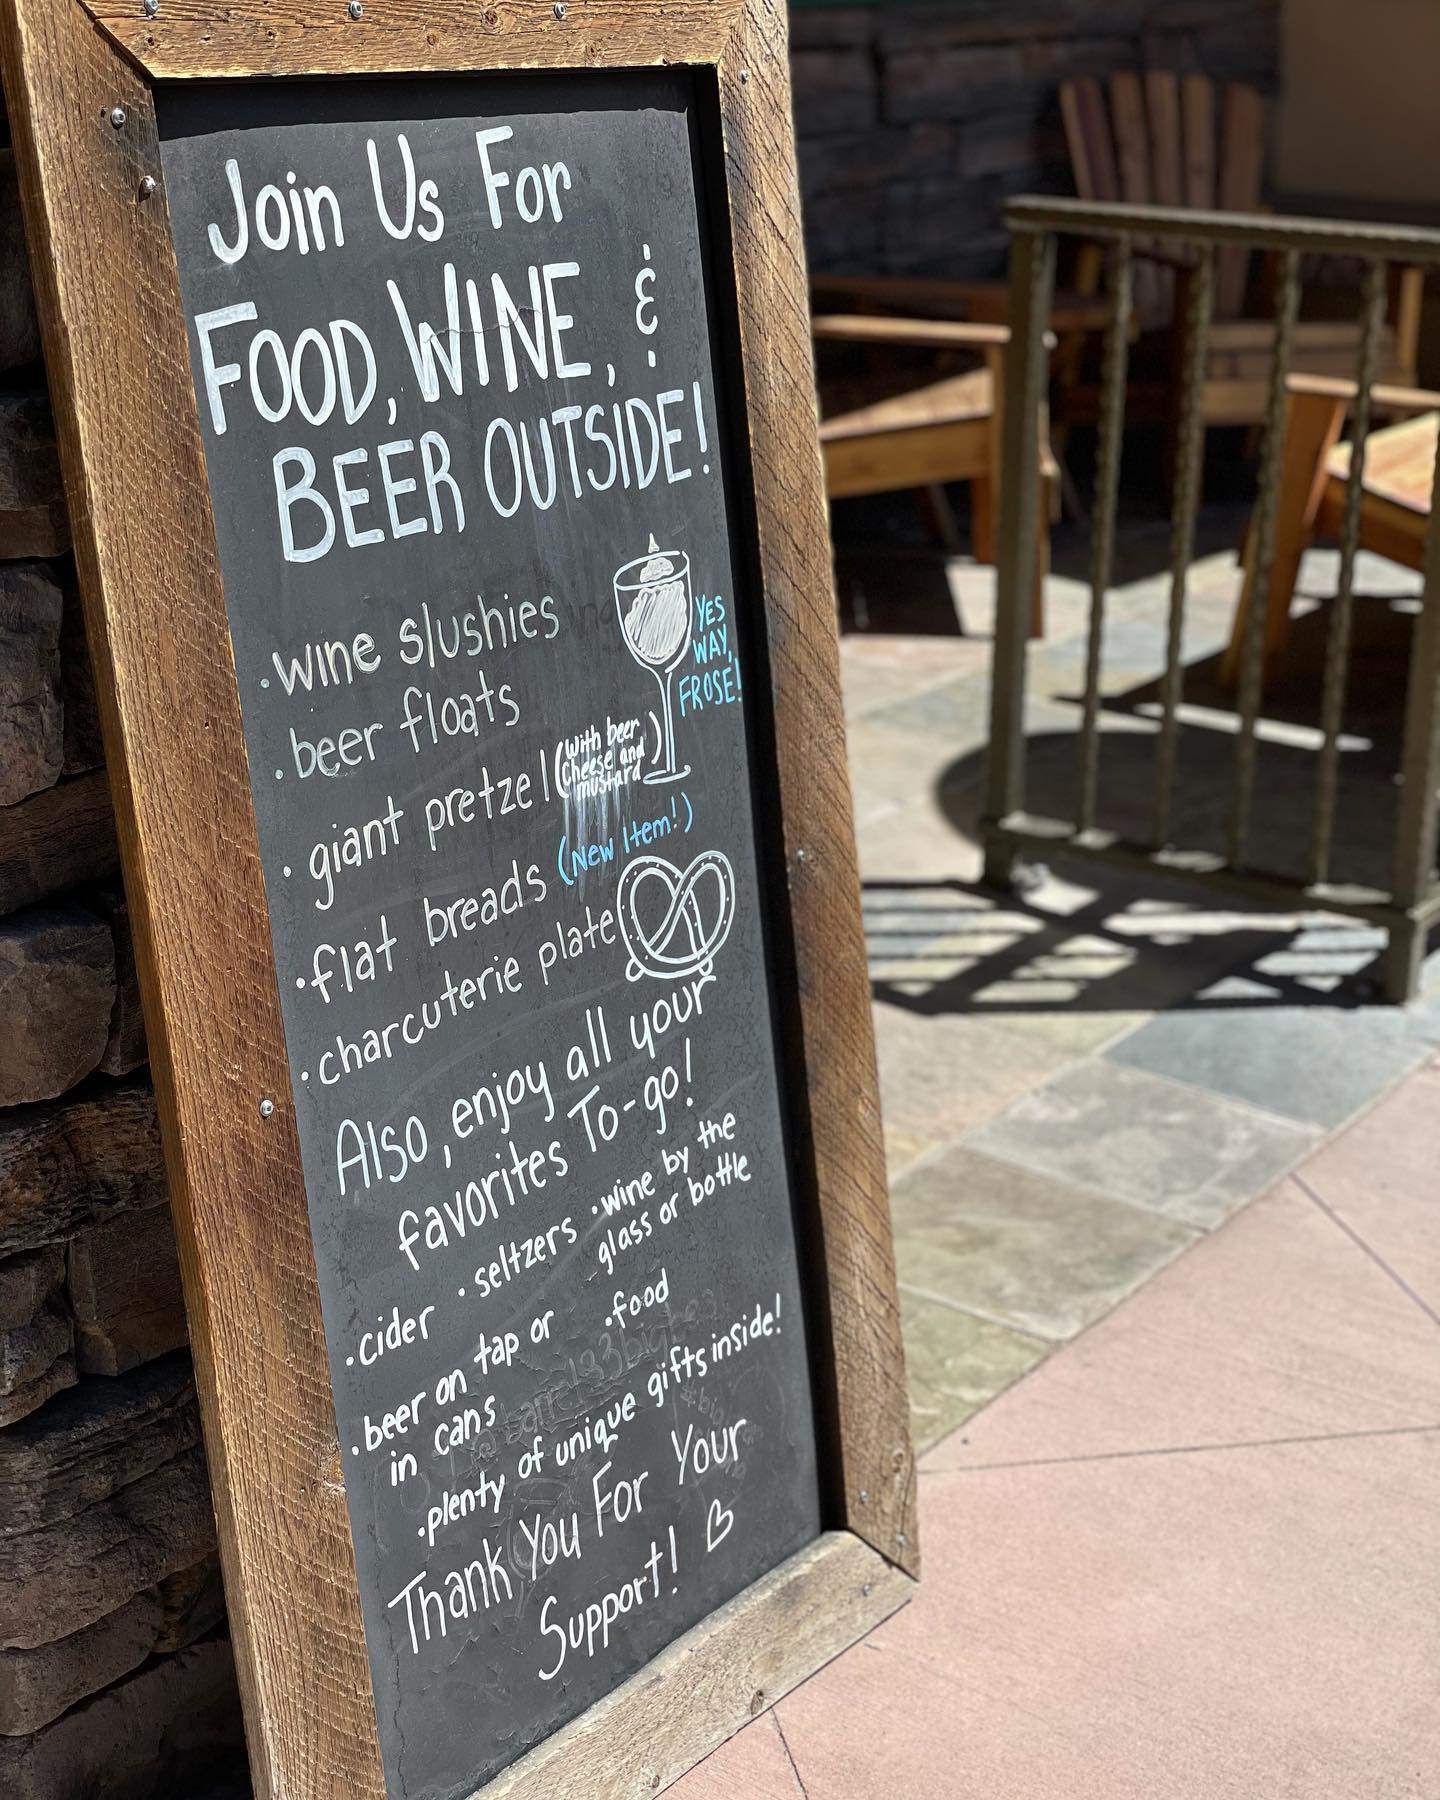 Join Us For
FOOD, WINE, &
BEER OUTSIDE!
• wine slushies
YES
WAY,
FROSE!
• beer floats
• giant pretzel (With beer
cheese and
mustard)
• flat breads (New Item!)
• charcuterie plate
Also, enjoy all your
favorites To-go!
• cider • seltzers • wine by the
glass or bottle
• beer on tap or
in cans
• food
• plenty of unique gifts inside!
Thank You For Your
Support! ♡